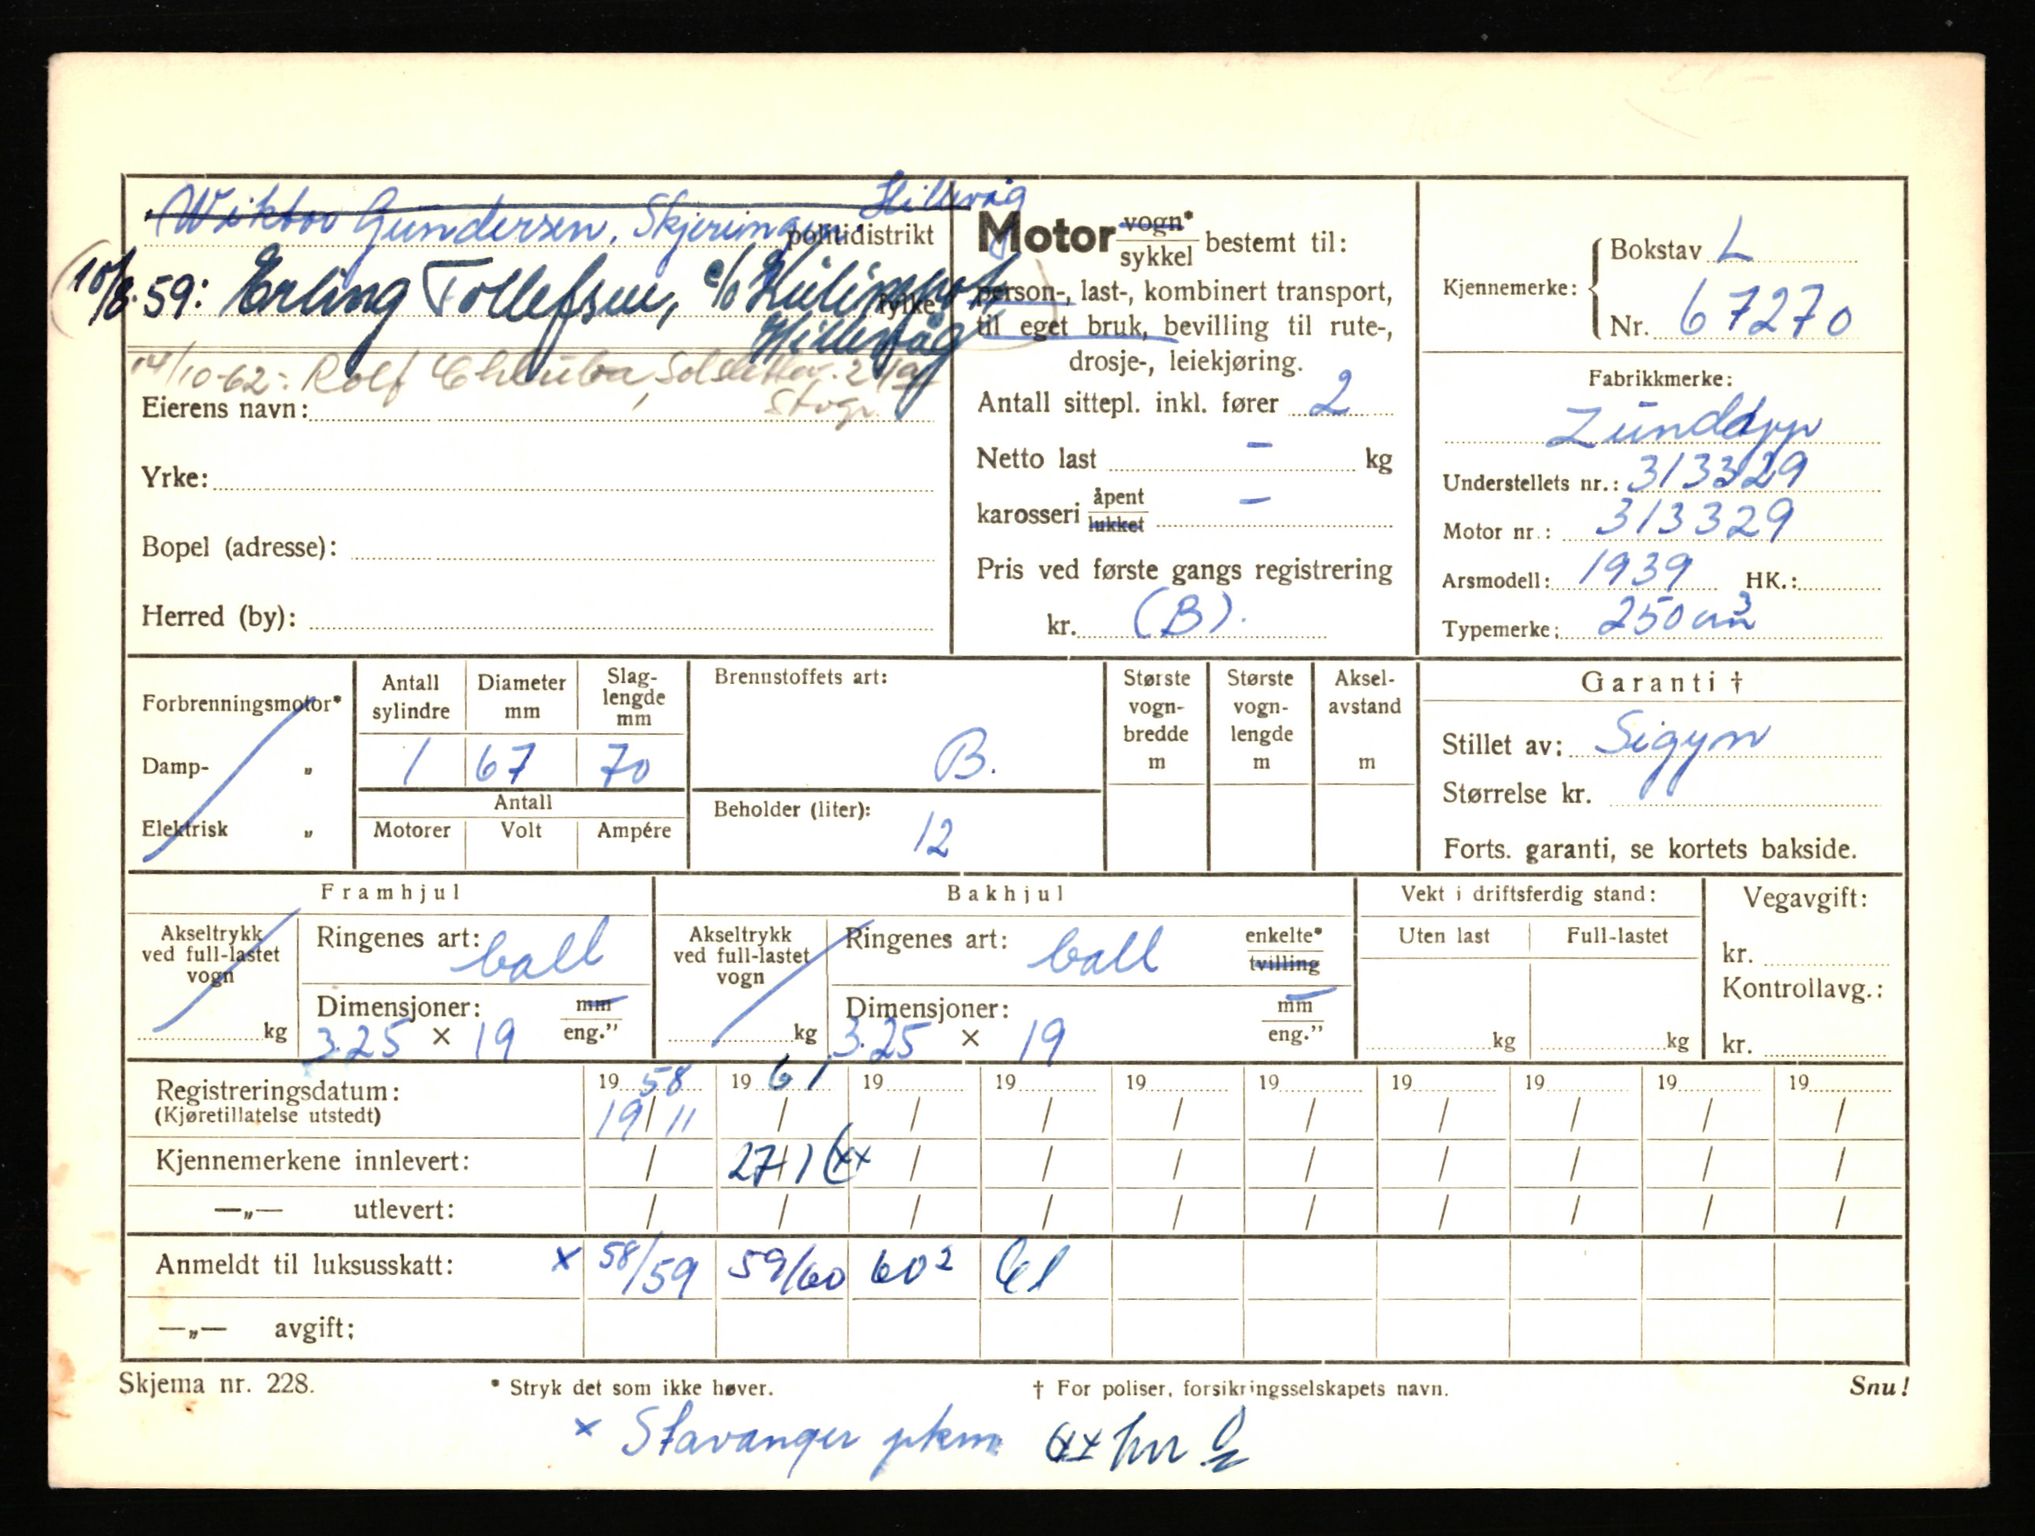 Wiktor Gundersen, Skjeringen, Hillevåg
politidistrikt
10/8.59: Erling Tollefsen, c/o
fylke
Hillevåg
14/10-62: Rolf
Stvgr.
Eierens navn:
Yrke:
Bopel (adresse):
Herred (by):
Motor vogn* sykkel bestemt til:
person-, last-, kombinert transport,
til eget bruk, bevilling til rute-,
drosje-, leiekjøring.
Antall sittepl. inkl. fører 2
Netto last – kg
karosseri åpent lukket –
Pris ved første gangs registrering
kr. (B).
Kjennemerke: Bokstav L
Nr. 67270
Fabrikkmerke:
Zündapp
Understellets nr.: 313329
Motor nr.: 313329
Arsmodell: 1939 HK.:
Typemerke: 250 cm3
Forbrenningsmotor*
Damp- „
Elektrisk „
Antall sylindre Diameter mm Slag-lengde mm
1 67 70
Antall
Motorer Volt Ampére
Brennstoffets art:
B.
Beholder (liter):
12
Største vogn-bredde m
Største vogn-lengde m
Aksel-avstand m
Garanti †
Stillet av: Sigyn
Størrelse kr.
Forts. garanti, se kortets bakside.
Framhjul
Akseltrykk ved full-lastet vogn kg
Ringenes art: ball
Dimensjoner: mm eng."
3.25 × 19
Bakhjul
Akseltrykk ved full-lastet vogn kg
Ringenes art: ball enkelte* tvilling
Dimensjoner: mm eng."
3.25 × 19
Vekt i driftsferdig stand:
Uten last Full-lastet
kg kg
Vegavgift:
kr.
Kontrollavg.:
kr.
Registreringsdatum: 19 58 19 61 19 19 19 19 19 19 19 19
(Kjøretillatelse utstedt) 19/11 / / / / / / / / /
Kjennemerkene innlevert: / 27/1 (xx / / / / / / / /
—„— utlevert: / / / / / / / / / /
Anmeldt til luksusskatt: x 58/59 59/60 60² 61
—„— avgift:
Skjema nr. 228. * Stryk det som ikke høver. † For poliser, forsikringsselskapets navn. Snu!
x Stavanger pkm